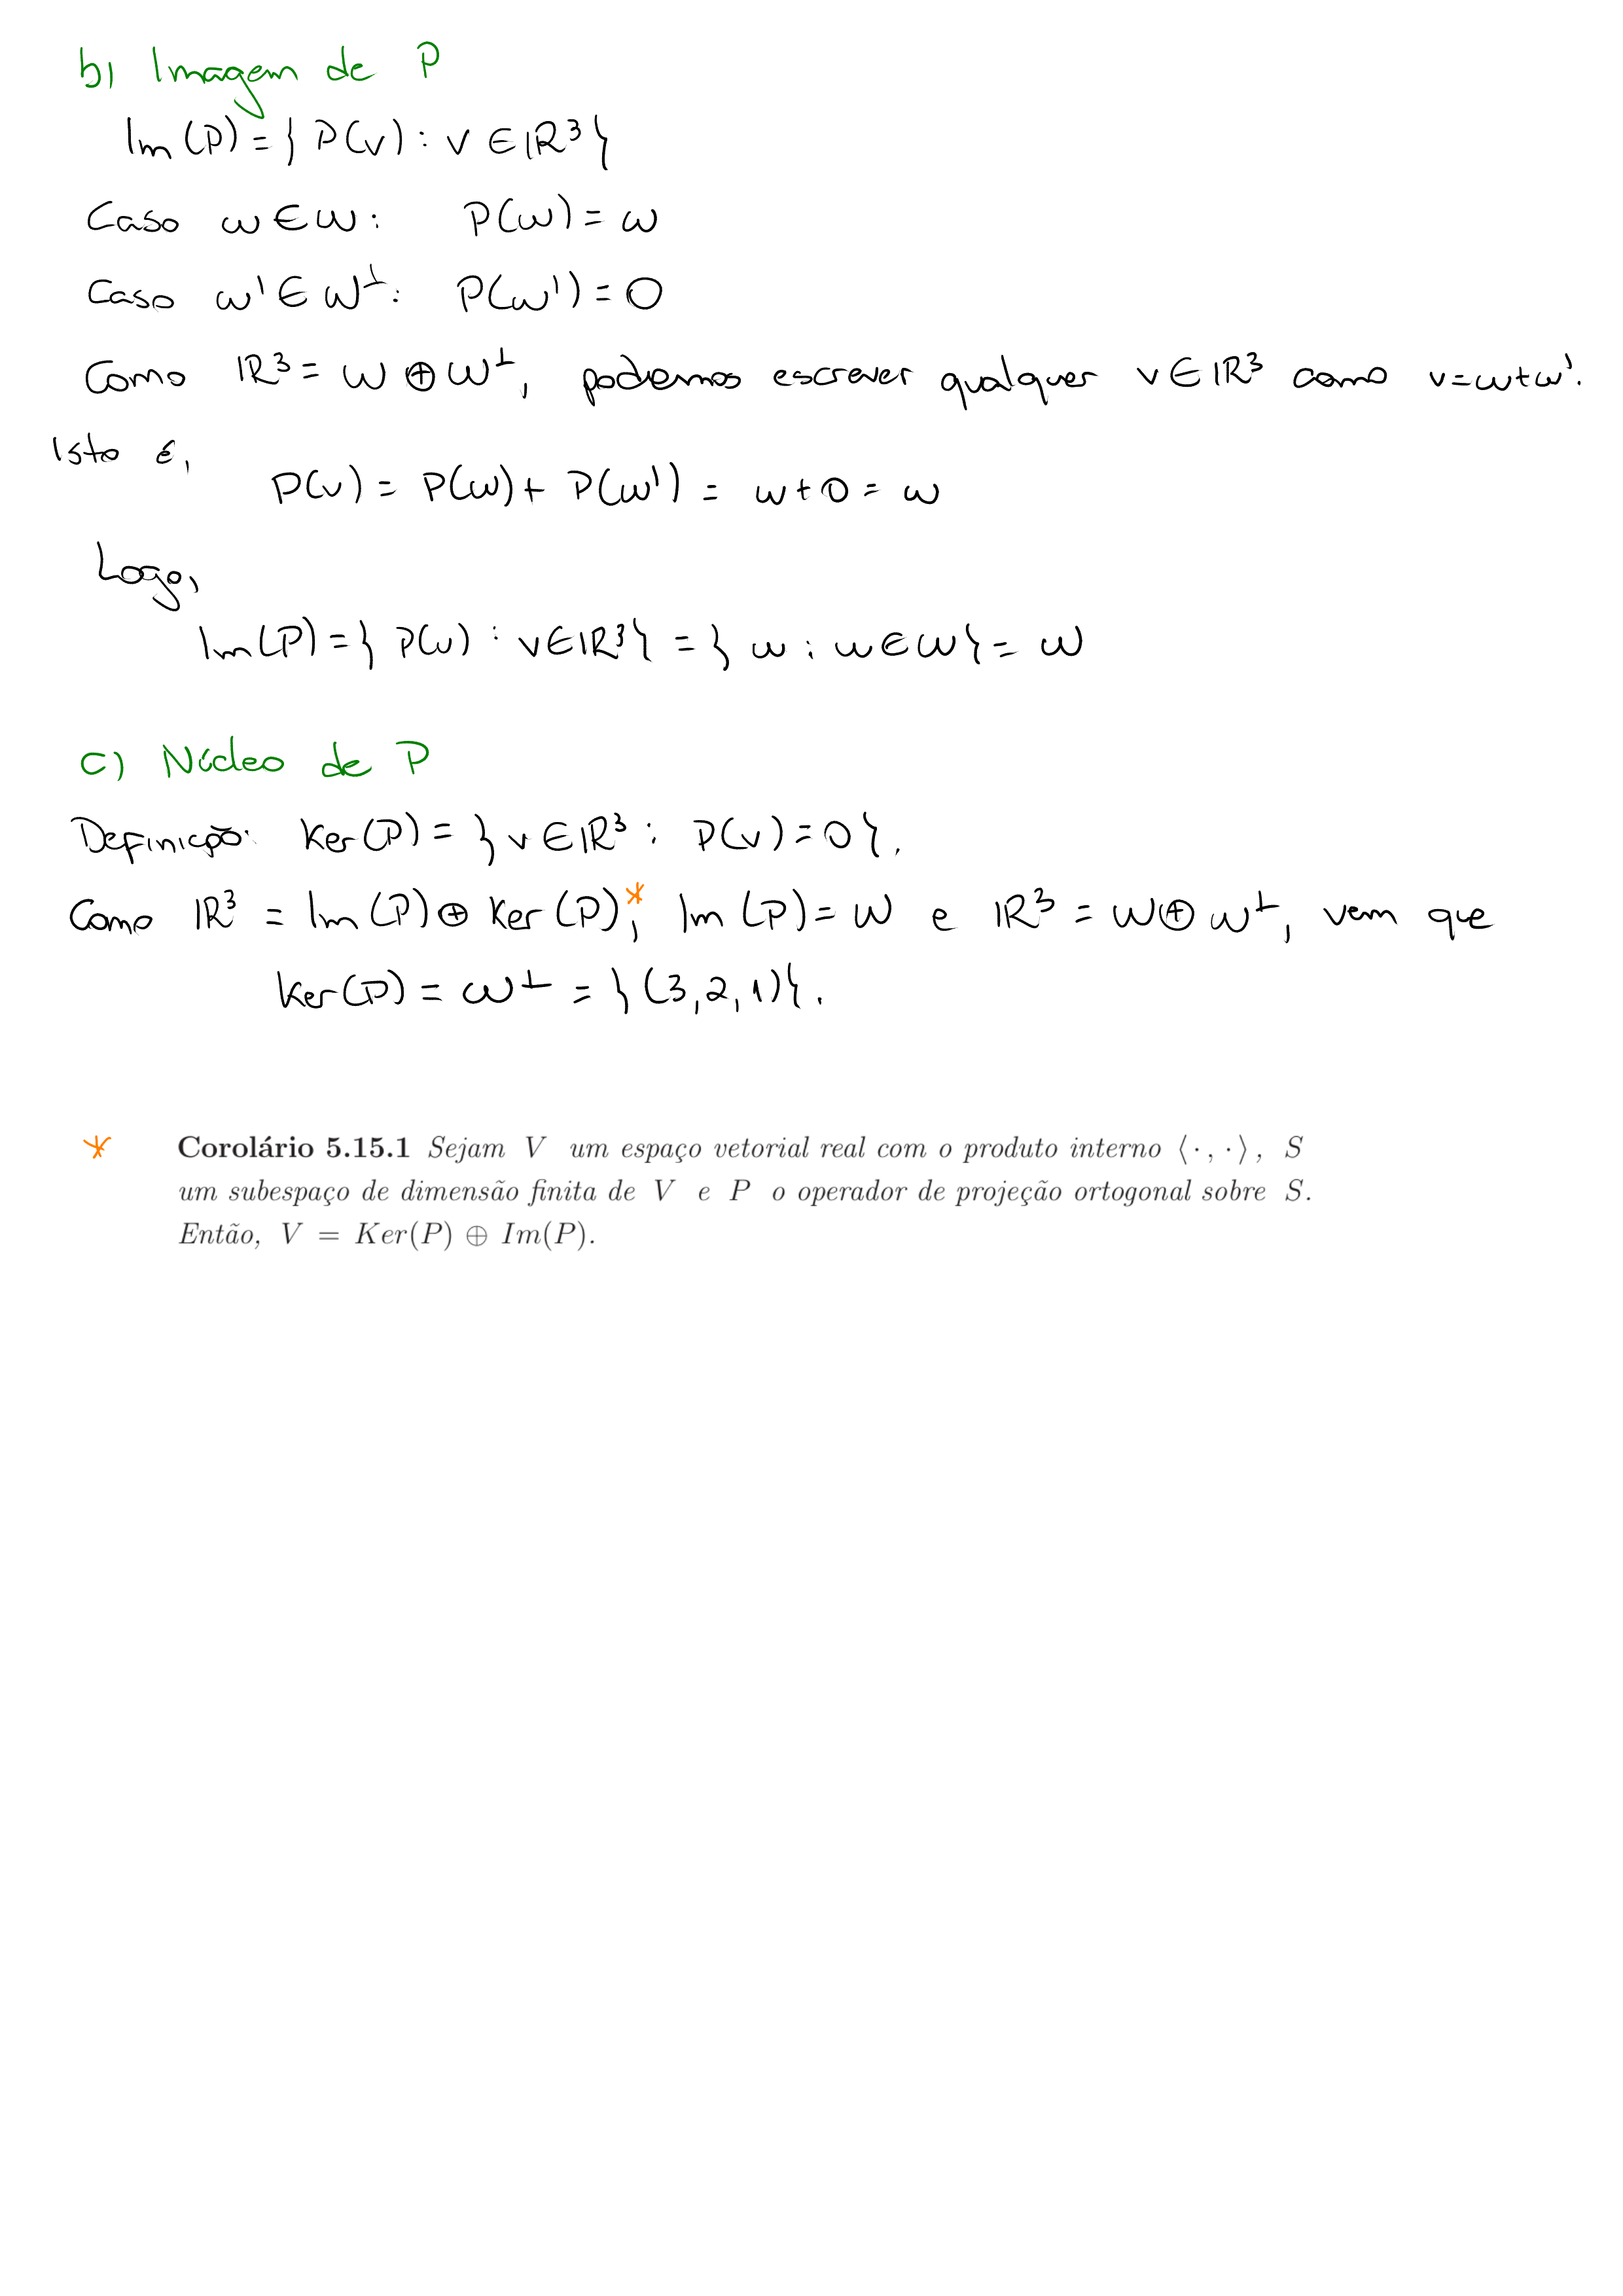 b) Imagem de P
Im(P) = { P(v) : v ∈ ℝ³ }
Caso w ∈ W : P(w) = w
Caso w' ∈ W⊥ : P(w') = 0
Como ℝ³ = W ⊕ W⊥, podemos escrever qualquer v ∈ ℝ³ como v = w + w'.
Isto é,
P(v) = P(w) + P(w') = w + 0 = w
Logo,
Im(P) = { P(v) : v ∈ ℝ³ } = { w : w ∈ W } = W
c) Núcleo de P
Definição: Ker(P) = { v ∈ ℝ³ : P(v) = 0 }.
Como ℝ³ = Im(P) ⊕ Ker(P)*, Im(P) = W e ℝ³ = W ⊕ W⊥, vem que
Ker(P) = W⊥ = { (3,2,1) }.
* Corolário 5.15.1 Sejam V um espaço vetorial real com o produto interno ⟨·, ·⟩, S
um subespaço de dimensão finita de V e P o operador de projeção ortogonal sobre S.
Então, V = Ker(P) ⊕ Im(P).